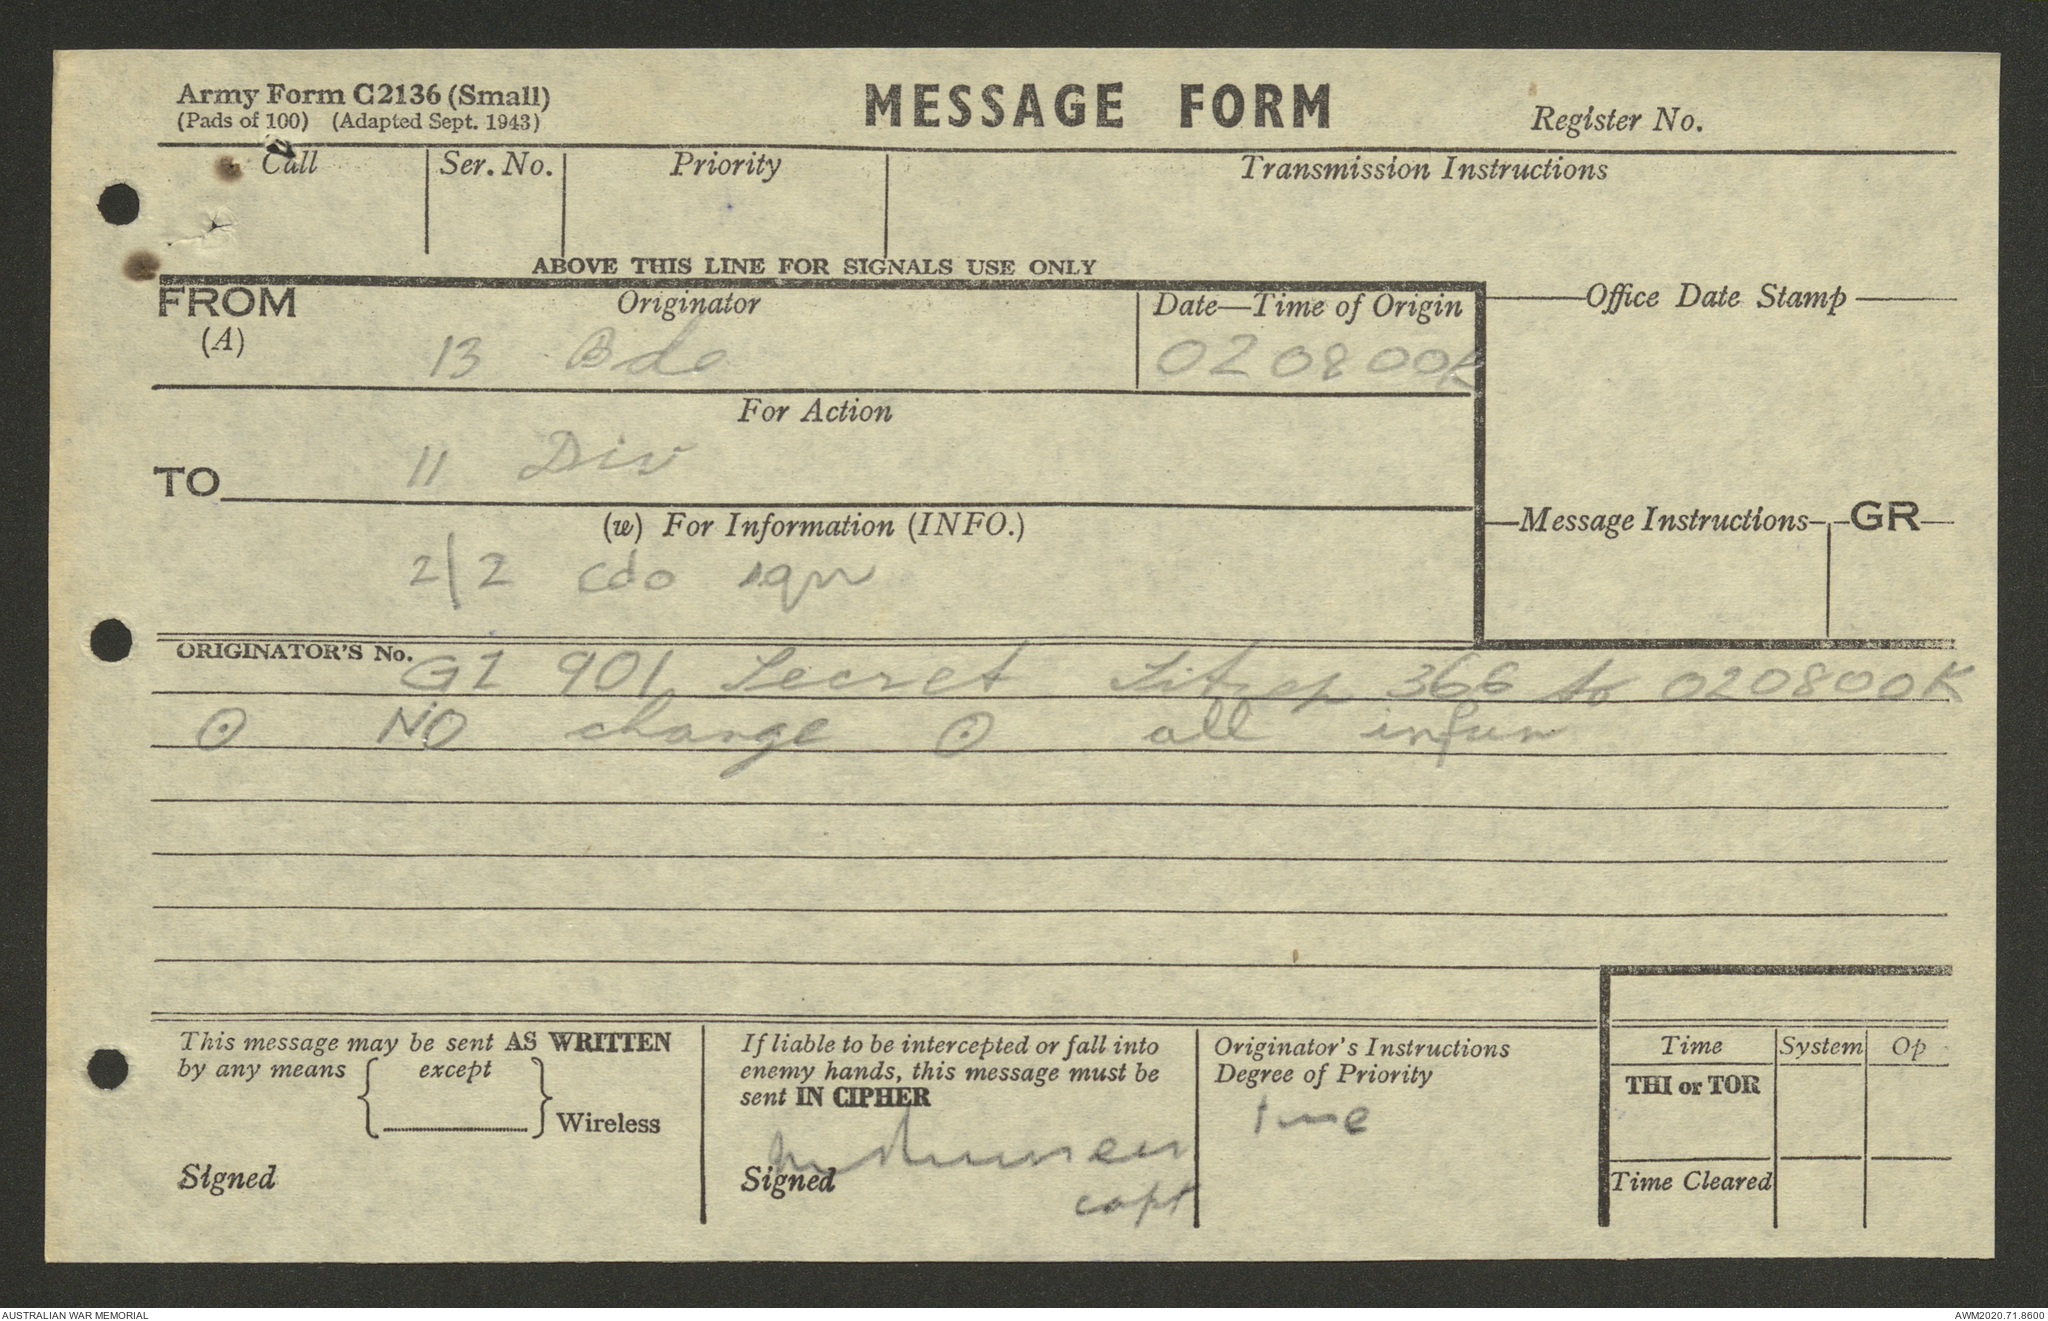 Army Form C2136 (Small)
(Pads of 100) (Adapted Sept. 1943)
MESSAGE FORM
Register No.
Call
Ser. No.
Priority
Transmission Instructions
ABOVE THIS LINE FOR SIGNALS USE ONLY
FROM
(A)
Originator
13 Bde
Date—Time of Origin
020800K
Office Date Stamp
For Action
TO
11 Div
(w) For Information (INFO.)
2/2 Cdo sqn
Message Instructions
GR
ORIGINATOR'S No.
GI 901 Secret Sitrep 366 to 020800K
⊙ NO change ⊙ all infm
This message may be sent AS WRITTEN
by any means { except } Wireless
Signed
If liable to be intercepted or fall into
enemy hands, this message must be
sent IN CIPHER
Signed
capt
Originator's Instructions
Degree of Priority
Time System Op
THI or TOR
Time Cleared
AUSTRALIAN WAR MEMORIAL
AWM2020.71.8600